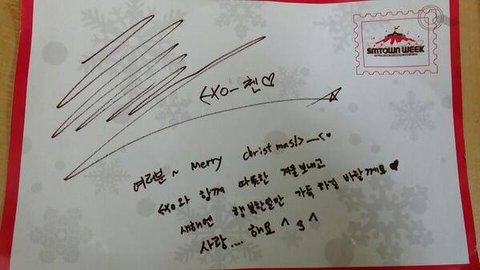 SMTOWN WEEK
EXO-첸♡
여러분~ Merry christmas!>_<♡
EXO와 함께 따뜻한 겨울보내고
새해엔 행복한일만 가득 하길 바랄께요♥
사랑.... 해요 ^3^